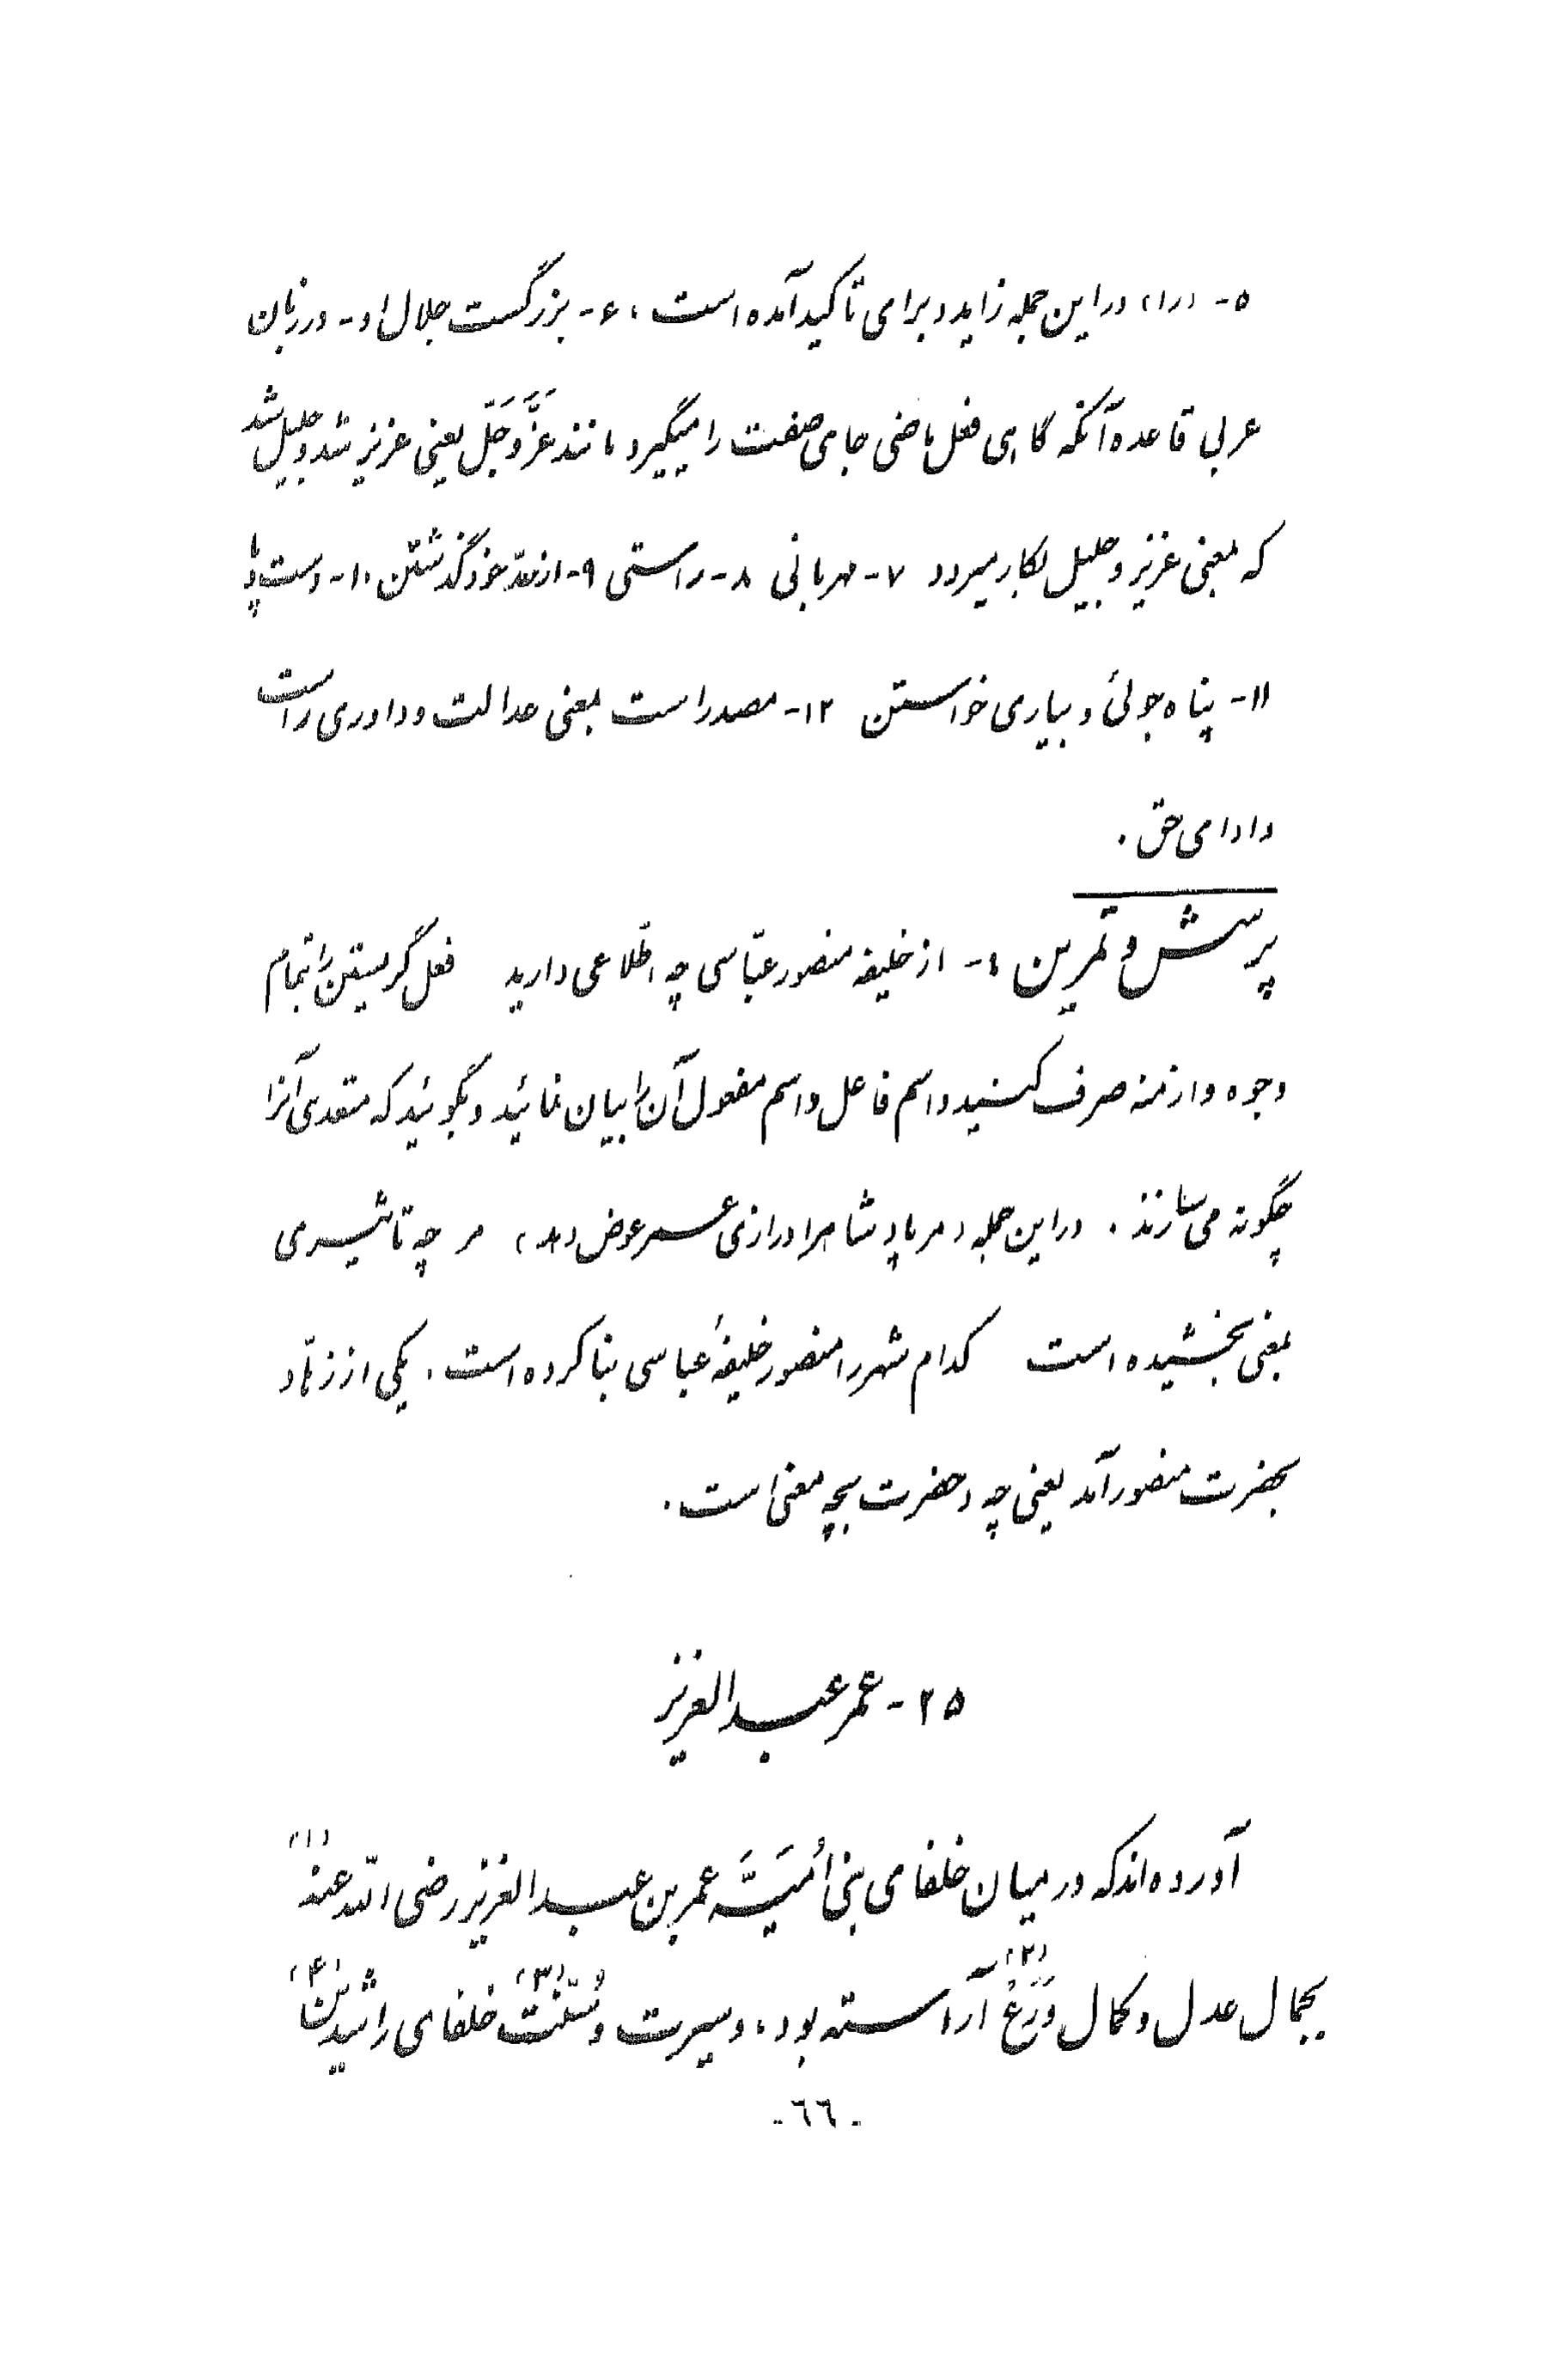 ۵- (را) در این جمله زاید و برای تاکید آمده است، ۶- بزرگست جلال او- در زبان
عربی قاعده آنکه گاهی فعل ماضی جای صفت را میگیرد مانند عَزَّ وَ جَلَّ یعنی عزیز شد و جلیل شد
که بمعنی عزیز و جلیل بکار میرود ۷- مهربانی ۸- راستی ۹- از حدّ خود گذشتن ۱۰- دست و پا
۱۱- پناه جوئی و یاری خواستن ۱۲- مصدر است بمعنی عدالت و داوری راست
و ادای حق.
پرسش و تمرین :- از خلیفه منصور عبّاسی چه اطّلاعی دارید فعل گریستن را بتمام
وجوه و ازمنه صرف کنید و اسم فاعل و اسم مفعول آن را بیان نمائید و بگوئید که متعدی آنرا
چگونه می‌سازند. در این جمله (مر پادشاه را درازی عمر عوض دهد) مر چه تاثیری
بمعنی بخشیده است کدام شهر را منصور خلیفهٔ عباسی بنا کرده است. یکی از زهّاد
بحضرت منصور آمد یعنی چه و حضرت بچه معنی است.
۲۵- عمر عبدالعزیز
آورده‌اند که در میان خلفای بنی اُمَیَّه عمر بن عبدالعزیز رضی اللّه عنه (۱)
بجمال عدل و کمال وَرَعْ (۲) آراسته بود، و سیرت و سُنّت (۳) خلفای راشدین (۴)
-٦٦-